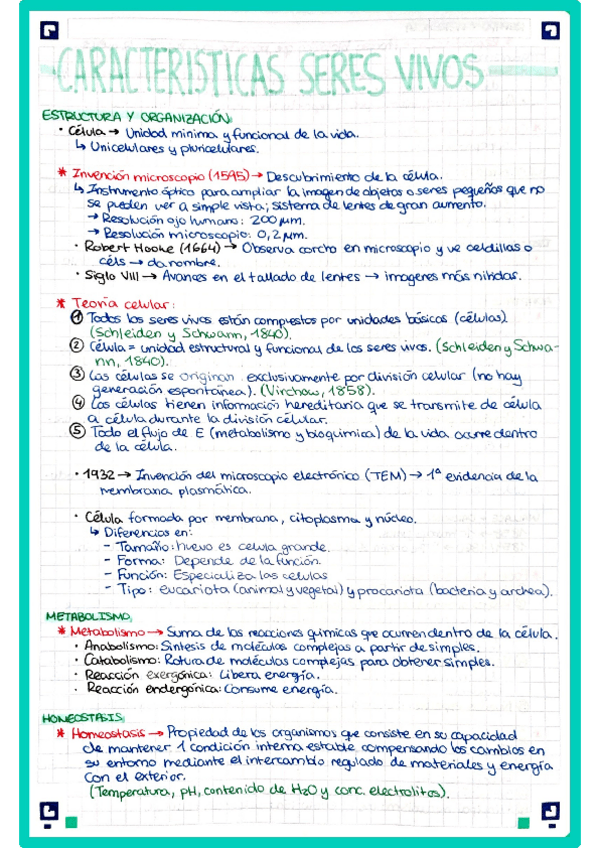 CARACTERISTICAS SERES VIVOS
ESTRUCTURA Y ORGANIZACIÓN:
· Célula → Unidad mínima y funcional de la vida.
↳ Unicelulares y pluricelulares.
* Invención microscopio (1595) → Descubrimiento de la célula.
↳ Instrumento óptico para ampliar la imagen de objetos o seres pequeños que no
se pueden ver a simple vista; sistema de lentes de gran aumento.
→ Resolución ojo humano: 200 μm.
→ Resolución microscopio: 0,2 μm.
· Robert Hooke (1664) → Observa corcho en microscopio y ve celdillas o
céls → da nombre.
· Siglo VIII → Avances en el tallado de lentes → imagenes más nítidas.
* Teoría celular:
① Todos los seres vivos están compuestos por unidades básicas (células).
(Schleiden y Schwann, 1840).
② Célula = unidad estructural y funcional de los seres vivos. (Schleiden y Schwa-
nn, 1840).
③ Las células se originan exclusivamente por división celular (no hay
generación espontánea). (Virchow, 1858).
④ Las células tienen información hereditaria que se transmite de célula
a célula durante la división celular.
⑤ Todo el flujo de E (metabolismo y bioquímica) de la vida ocurre dentro
de la célula.
· 1932 → Invención del microscopio electrónico (TEM) → 1ª evidencia de la
membrana plasmática.
· Célula formada por membrana, citoplasma y núcleo.
↳ Diferencias en:
- Tamaño: huevo es celula grande.
- Forma: Depende de la función.
- Función: Especializa las celulas
- Tipo: eucariota (animal y vegetal) y procariota (bacteria y archea).
METABOLISMO:
* Metabolismo → Suma de las reacciones químicas que ocurren dentro de la célula.
· Anabolismo: Síntesis de moléculas complejas a partir de simples.
· Catabolismo: Rotura de moléculas complejas para obtener simples.
· Reacción exergónica: Libera energía.
· Reacción endergónica: Consume energía.
HOMEOSTASIS:
* Homeostasis → Propiedad de los organismos que consiste en su capacidad
de mantener 1 condición interna estable, compensando los cambios en
su entorno mediante el intercambio regulado de materiales y energía
con el exterior.
(Temperatura, pH, contenido de H2O y conc. electrolitos).